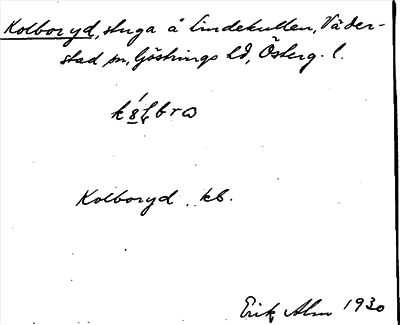 Kolboryd, stuga å Lindekullen, Väder-
stad sn, Göstrings hd, Österg. l.
Kolboryd kb.
Erik Alm 1930